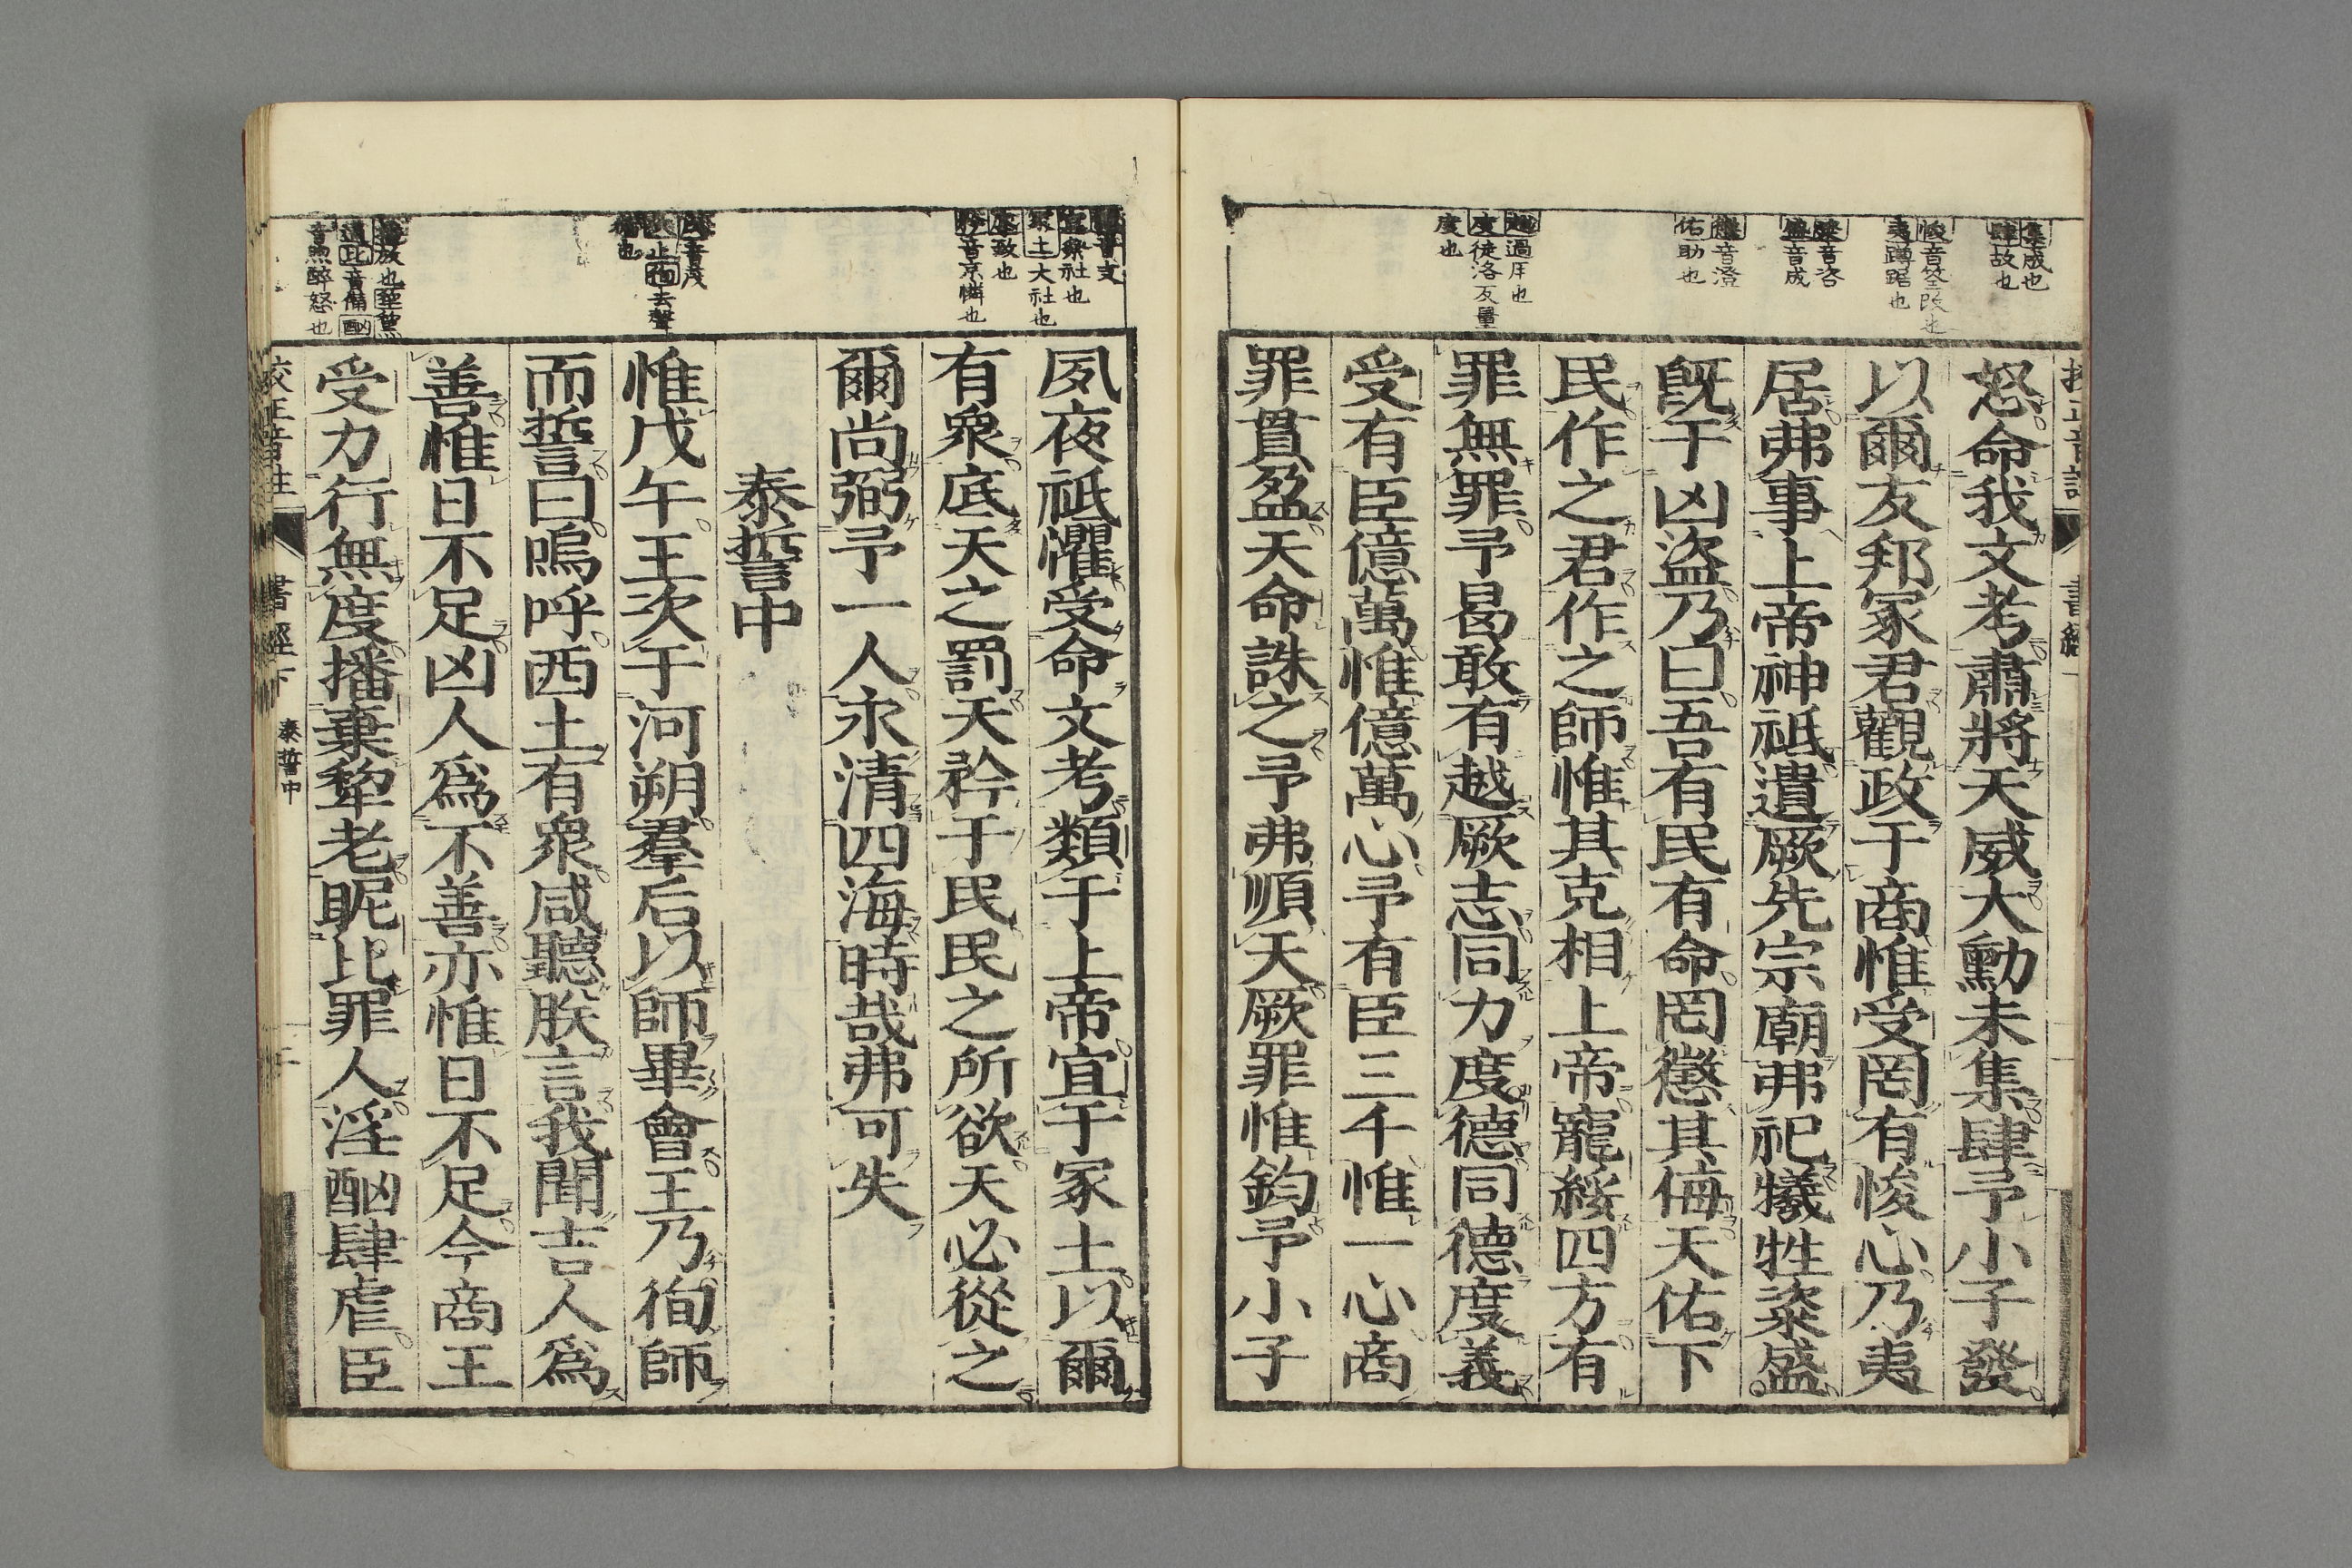 集成也
肆故也
悛音筌改也
夷蹲踞也
粢音咨
盛音成
懲音澄
佑助也
越過厈也
度徒洛反量
度也
怒命我文考肅將天威大勳未集肆予小子發
以爾友邦冢君觀政于商惟受罔有悛心乃夷
居弗事上帝神祗遺厥先宗廟弗祀犧牲粢盛
旣于凶盜乃曰吾有民有命罔懲其侮天佑下
民作之君作之師惟其克相上帝寵綏四方有
罪無罪予曷敢有越厥志同力度德同德度義
受有臣億萬惟億萬心予有臣三千惟一心商
罪貫盈天命誅之予弗順天厥罪惟鈞予小子
宜祭社也
冢土大社也
底致也
矜音京憐也
夙夜祗懼受命文考類于上帝宜于冢土以爾
有衆底天之罰天矜于民民之所欲天必從之
爾尚弼予一人永清四海時哉弗可失
泰誓中
惟戊午王次于河朔羣后以師畢會王乃徇師
而誓曰嗚呼西土有衆咸聽朕言我聞吉人爲
善惟日不足凶人爲不善亦惟日不足今商王
受力行無度播棄犂老昵比罪人淫酗肆虐臣
校正音註 書經下 泰誓中